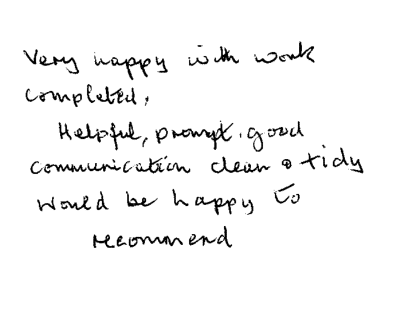 Very happy with work
completed,
Helpful, prompt, good
communication clean & tidy
would be happy to
recommend